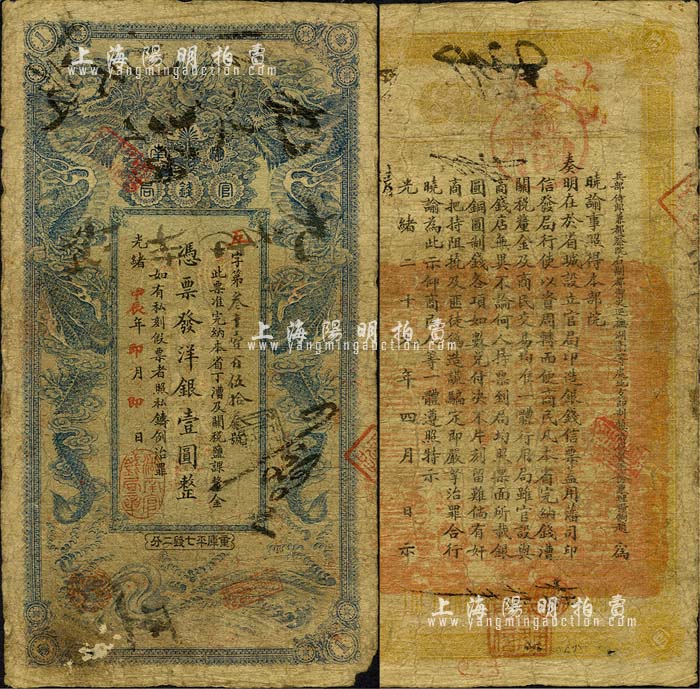 上海陽明拍賣
www.yangmingauction.com
南
官錢局
左字第叁千壹百伍拾叁號
此票准完納本省丁漕及關稅鹽課釐金
憑票發洋銀壹圓整
如有私刻假票者照私鑄例治罪
光緒甲辰年 印 月 印 日
重庫平七錢二分
1
1
上海陽明拍賣
www.yangmingauction.com
上海陽明拍賣
www.yangmingauction.com
兵部侍郎
為
曉諭事照得本部院
奏明在於省城設立官局印造銀錢信票蓋用藩司印
信發局行使以資周轉而便商民凡本省完納錢漕
關稅釐金及商民交易均准一體行用局雖官設與
商錢店無異不論何人持票到局均照票面所載銀
圓銅圓制錢各項如數兌付決不片刻留難倘有奸
商把持阻撓及匪徒造謠騙定即嚴拏治罪合行
曉諭為此示仰商民等一體遵照特示
光緒二十年四月 日示
上海陽明拍賣
www.yangmingauction.com